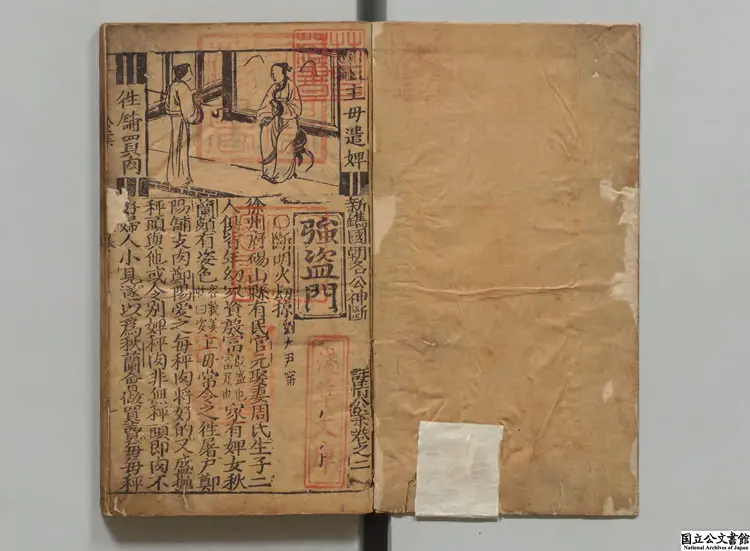 主母遣婢
徃舖買肉
新鐫國朝名公神斷
詳情公案卷之二
強盗門
○斷明火劫掠 劉大尹審
徐州府碭山縣有民官元娶妻周氏生子二
人俱皆年幼家資殷富殷盛也富足也家有婢女秋
蘭頗有姿色主母常令之徃屠戶鄭
陽舖支肉鄭陽愛之每秤肉將好的又盛
秤頭與他或令別婢秤肉非無秤頭即肉不
婦人小見遂以為秋蘭會做買賣每每秤
淺草文庫
国立公文書館
National Archives of Japan